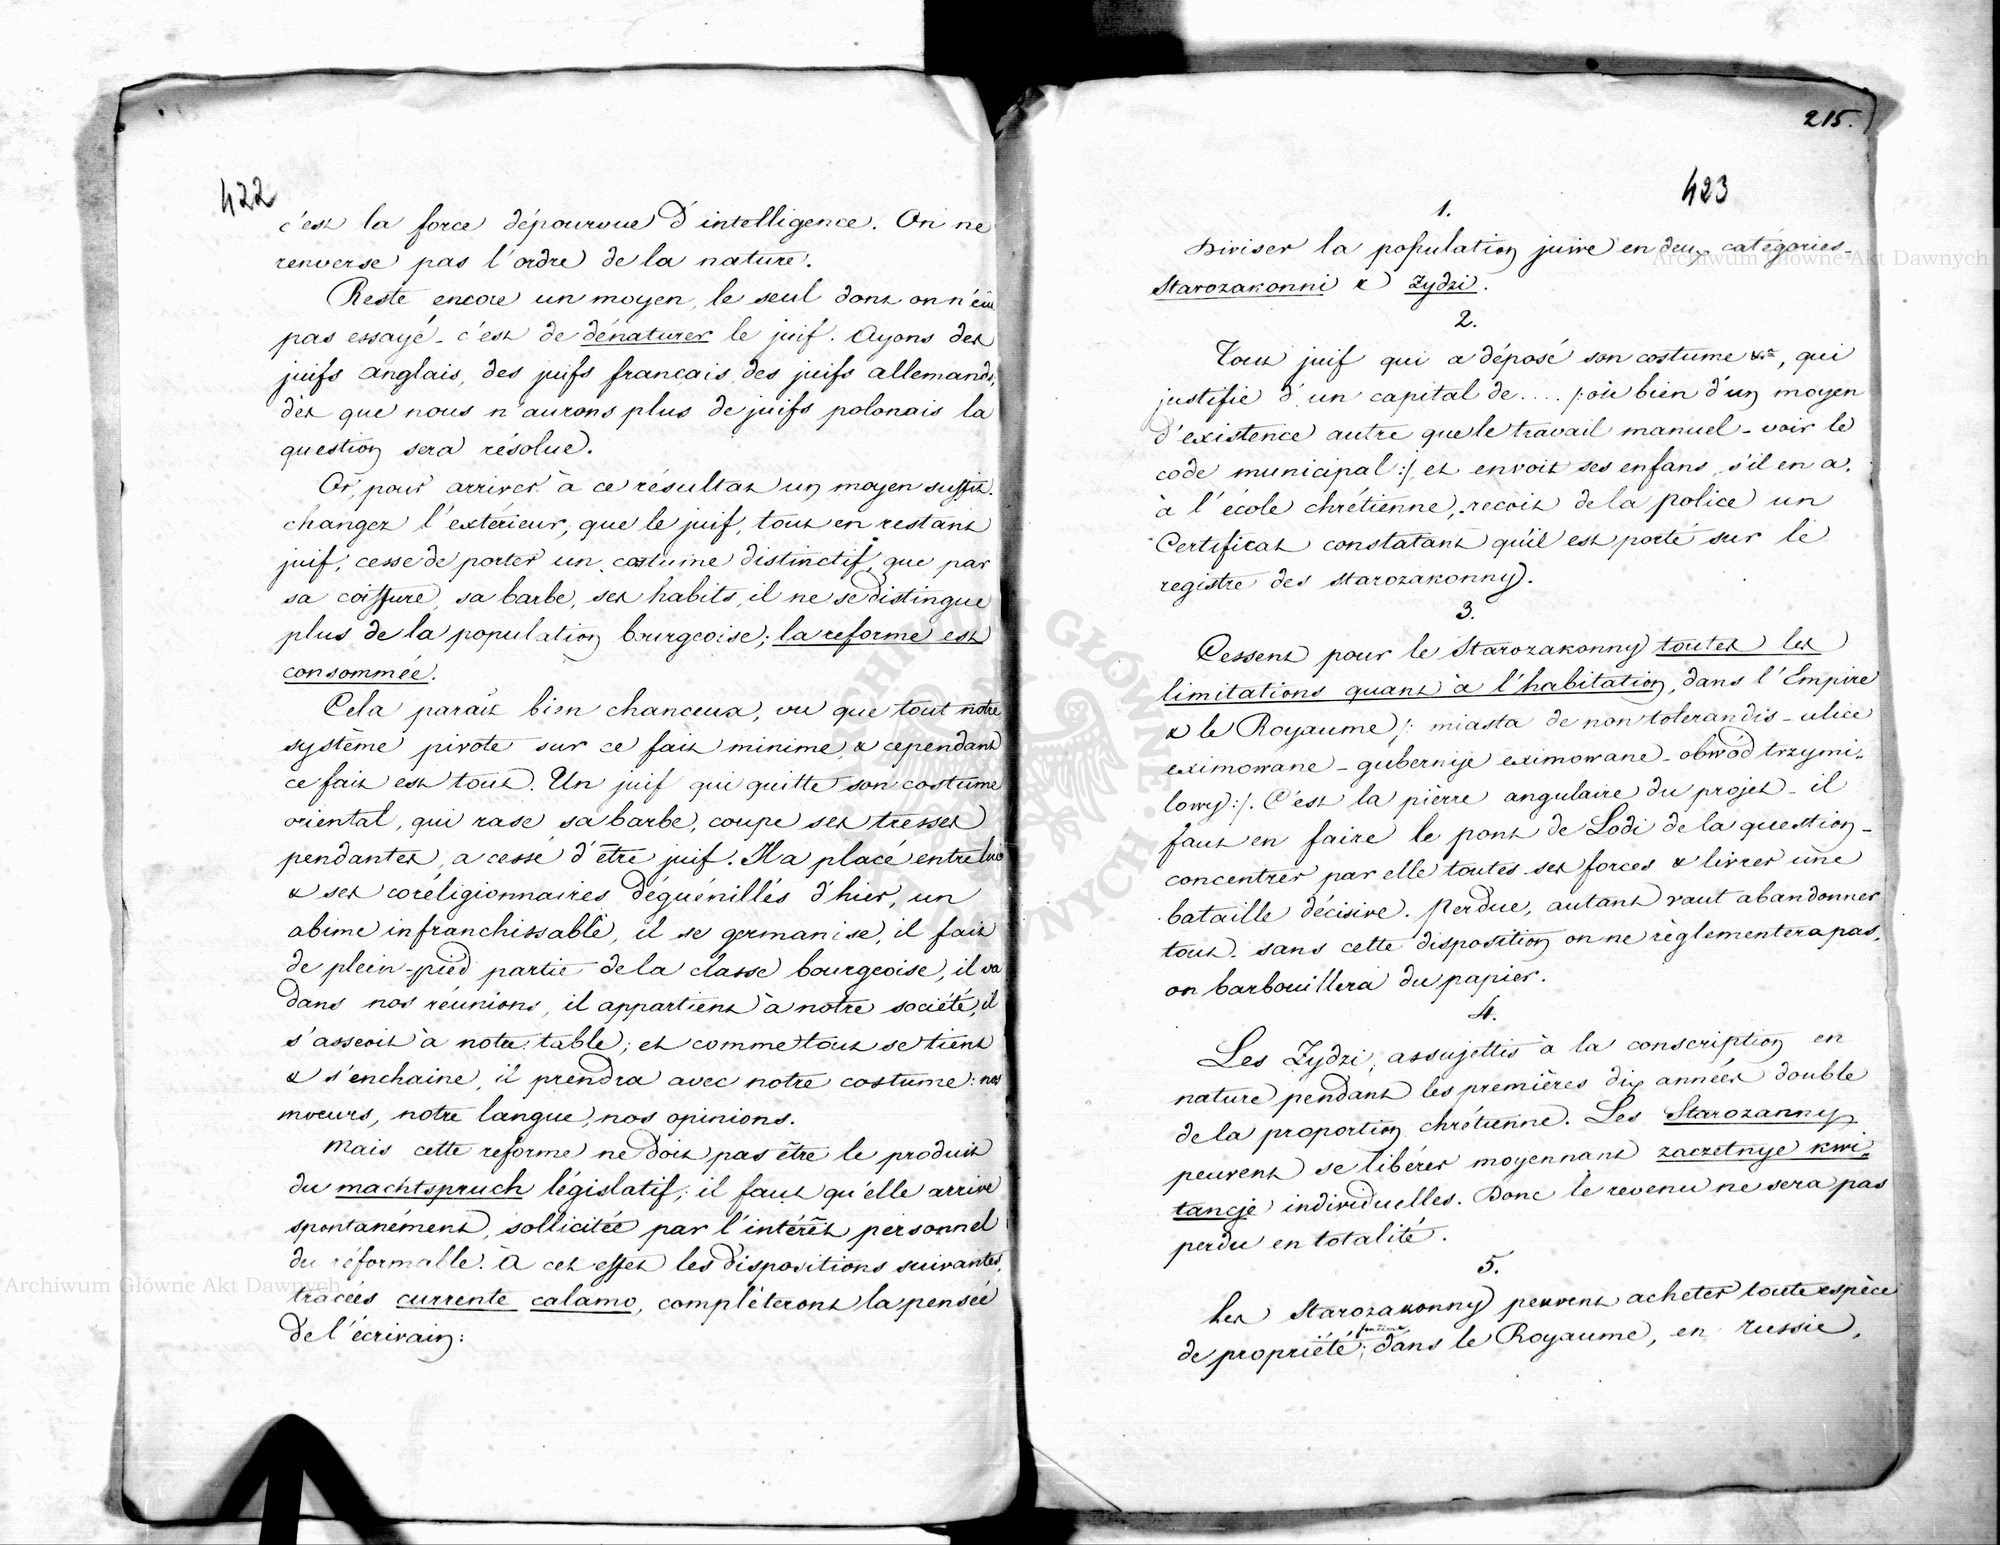 422
c'est la force dépourvue d'intelligence. On ne
renverse pas l'ordre de la nature.
Reste encore un moyen, le seul dont on n'eût
pas essayé - c'est de dénaturer le juif. Ayons des
juifs anglais, des juifs francais, des juifs allemands,
dès que nous n'aurons plus de juifs polonais la
question sera résolue.
Or, pour arriver à ce résultat un moyen suffit.
changez l'extérieur, que le juif, tout en restant
juif, cesse de porter un costume distinctif, que par
sa coiffure, sa barbe, ses habits, il ne se distingue
plus de la population bourgeoise; la reforme est
consommée.
Cela parait bien chanceux, vu que tout notre
système pivote sur ce fait minime, & cependant
ce fait est tout. Un juif qui quitte son costume
oriental, qui rase sa barbe, coupe ses tresses
pendantes, a cessé d'être juif. Il a placé entre lui
& ses coréligionnaires déguénillés d'hier, un
abime infranchissable, il se germanise, il fait
de plein-pied partie de la classe bourgeoise, il va
dans nos réunions, il appartient à notre société, il
s'asseoit à notre table; et comme tout se tient
& s'enchaine, il prendra avec notre costume: nos
moeurs, notre langue, nos opinions.
Mais cette reforme ne doit pas être le produit
du machtspruch législatif; il faut qu'elle arrive
spontanément, sollicitée par l'intérêt personnel
du réformable. A cet effet les dispositions suivantes,
tracées currente calamo, complèteront la pensée
de l'écrivain:
215.
423
1.
Diviser la population juive en deux catégories -
Starozakonni & Żydzi.
2.
Tout juif qui a déposé son costume, qui
justifie d'un capital de .... /: où bien d'un moyen
d'existence autre que le travail manuel - voir le
code municipal :/ et envoit ses enfans, s'il en a,
à l'école chrétienne, recoit de la police un
Certificat constatant qu'il est porté sur le
registre des starozakonny.
3.
Cessent pour le Starozakonny toutes les
limitations quant à l'habitation, dans l'Empire
& le Royaume /: miasta de non tolerandis - ulice
eximowane - gubernije eximowane - obwód trzymi-
lowy :/. C'est la pièrre angulaire du projet - il
faut en faire le pont de Lodi de la question -
concentrer par elle toutes ses forces & livrer une
bataille décisive. Perdue, autant vaut abandonner
tout - sans cette disposition on ne règlementera pas,
on barbouillera du papier.
4.
Les Żydzi, assujettis à la conscription en
nature pendant les premières dix années double
de la proportion chrétienne. Les Starozanny
peuvent se libérer moyennant zaczetnyje kwi-
tancje individuelles. Donc le revenu ne sera pas
perdu en totalité.
5.
Les Starozakonny peuvent acheter toute espèce
de propriété foncière dans le Royaume, en Russie,
Archiwum Główne Akt Dawnych
Archiwum Główne Akt Dawnych
ARCHIWUM GŁÓWNE AKT DAWNYCH